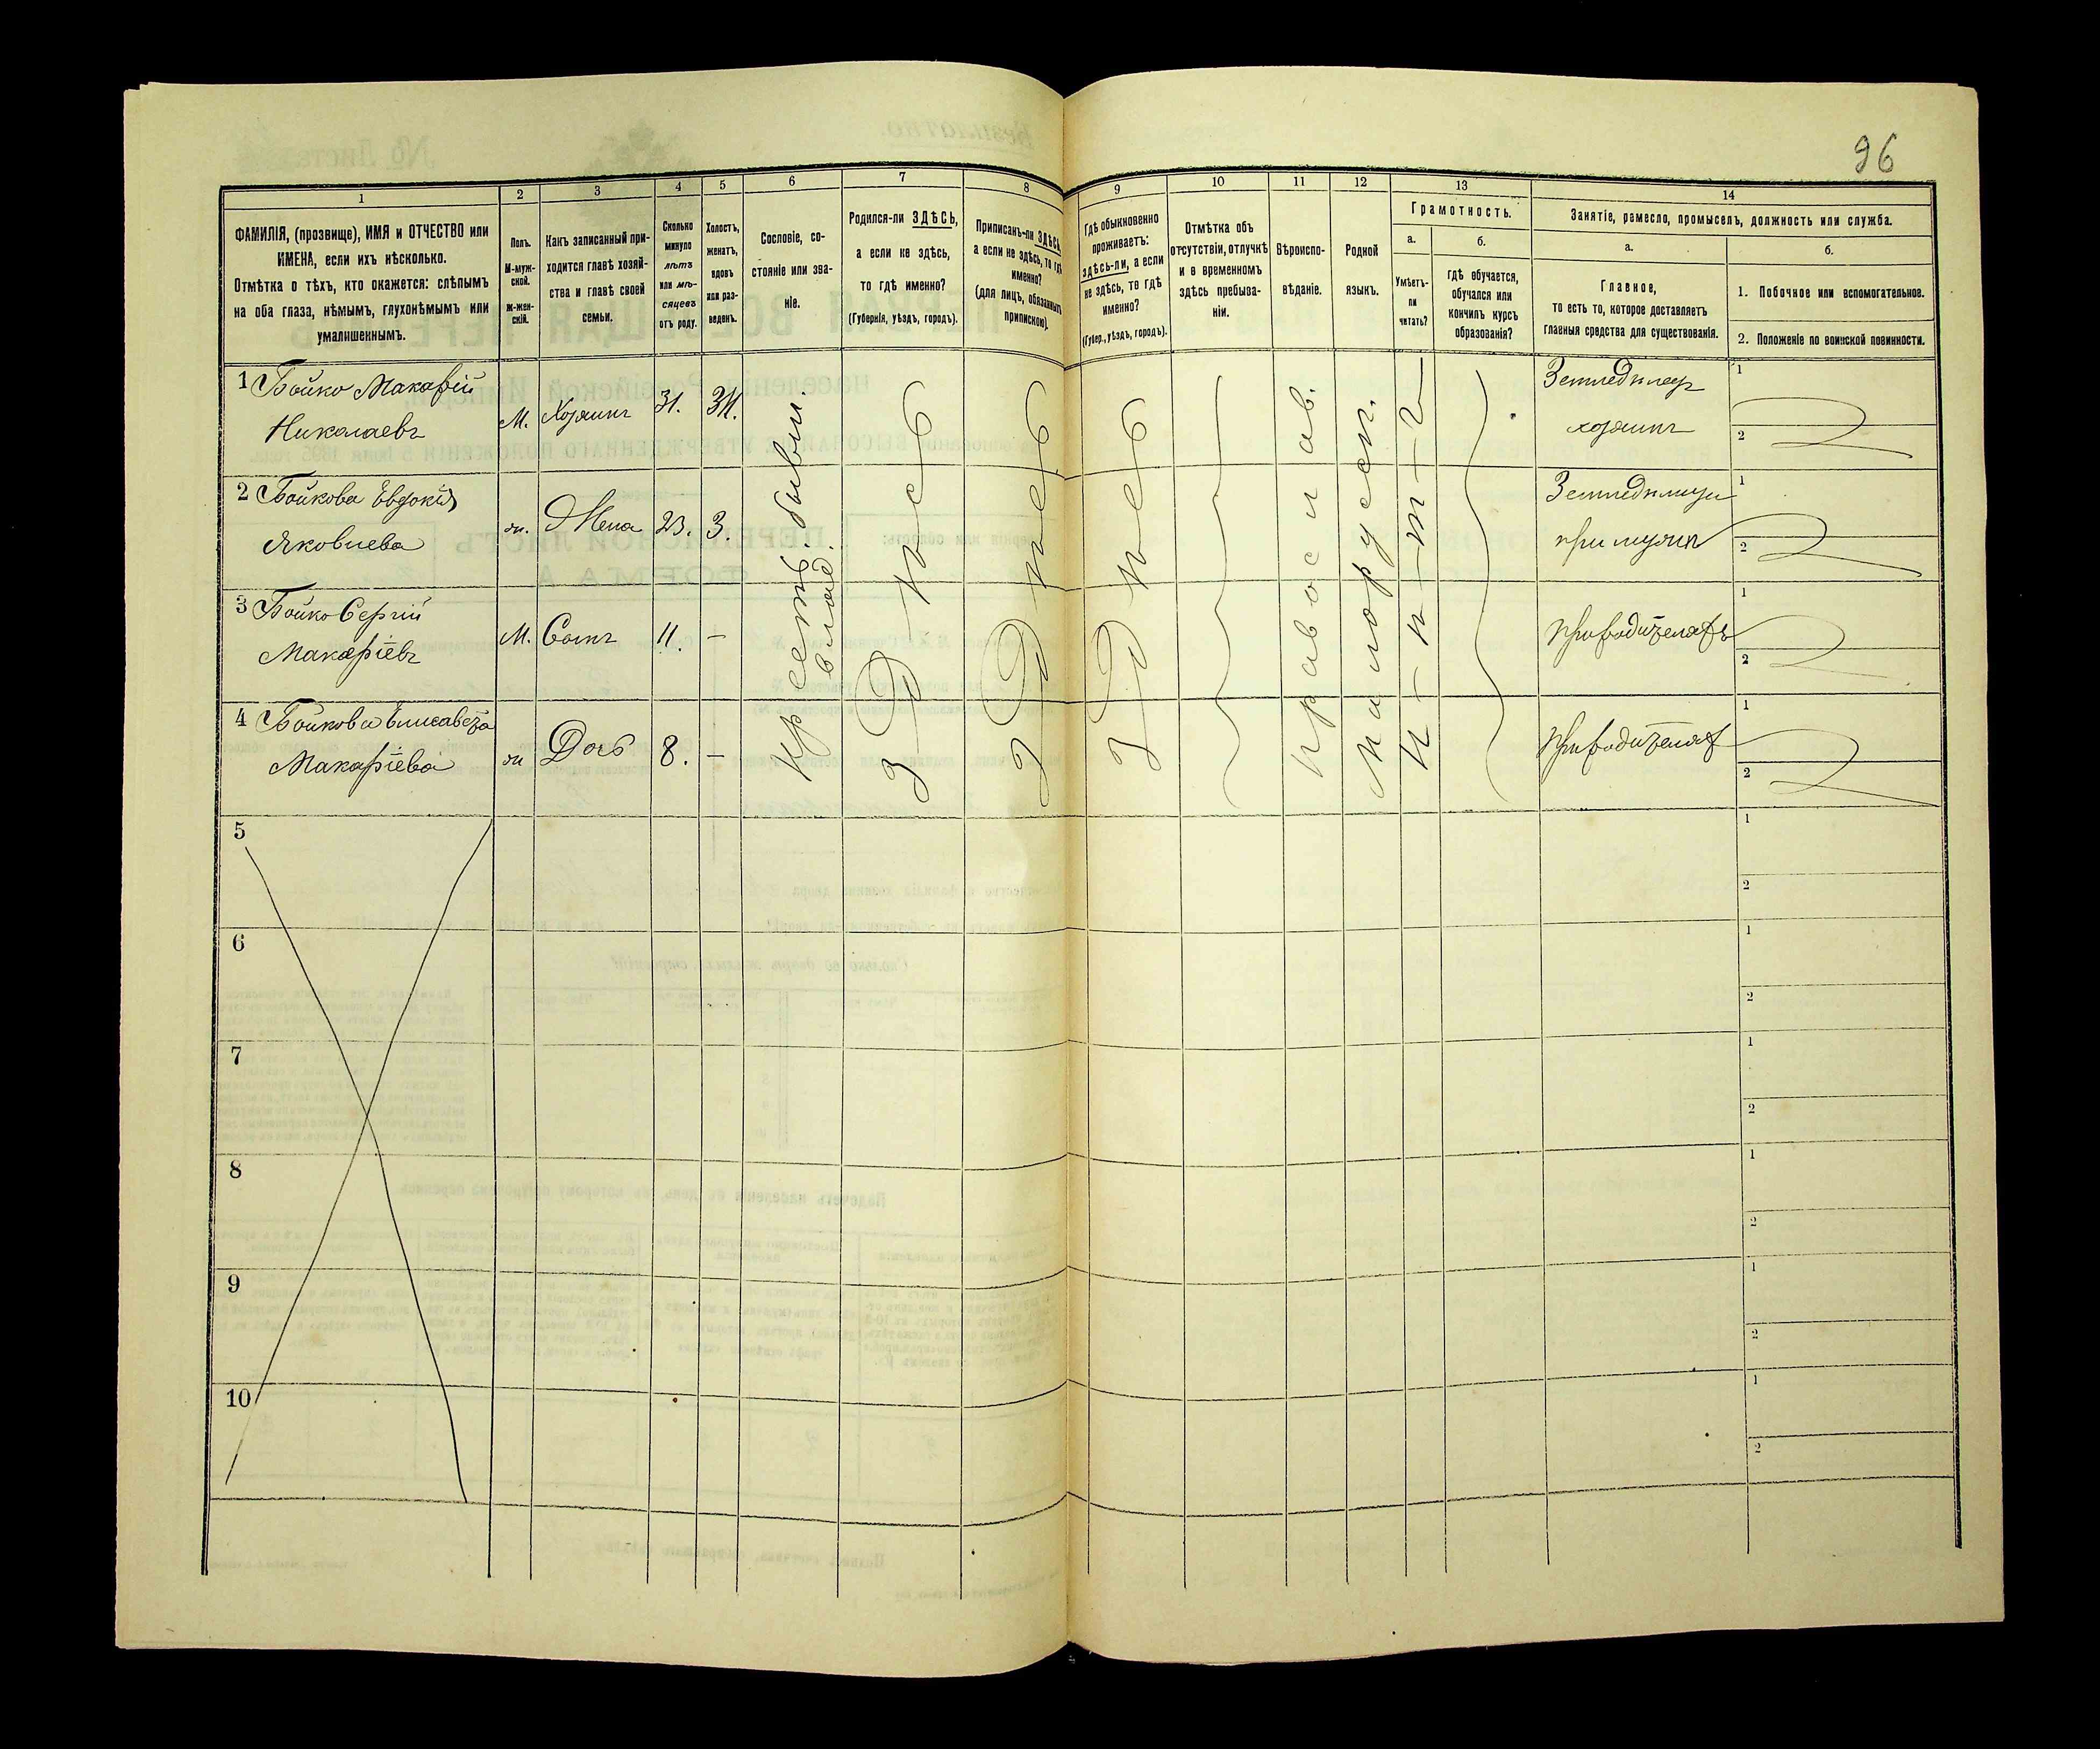 96
1
2
3
4
5
6
7
8
9
10
11
12
13
14
ФАМИЛІЯ, (прозвище), ИМЯ и ОТЧЕСТВО или
ИМЕНА, если ихъ нѣсколько.
Отмѣтка о тѣхъ, кто окажется: слѣпымъ
на оба глаза, нѣмымъ, глухонѣмымъ или
умалишеннымъ.
Полъ.
М-муж-
ской.
Ж-жен-
скій.
Какъ записанный при-
ходится главѣ хозяй-
ства и главѣ своей
семьи.
Сколько
минуло
лѣтъ
или мѣ-
сяцевъ
отъ роду.
Холостъ,
женатъ,
вдовъ
или раз-
веденъ.
Сословіе, со-
стояніе или зва-
ніе.
Родился-ли ЗДѢСЬ,
а если не здѣсь,
то гдѣ именно?
(Губернія, уѣздъ, городъ).
Приписанъ-ли ЗДѢСЬ,
а если не здѣсь, то гдѣ
именно?
(для лицъ, обязанныхъ
припискою).
Гдѣ обыкновенно
проживаетъ:
здѣсь-ли, а если
не здѣсь, то гдѣ
именно?
(Губер., уѣздъ, городъ).
Отмѣтка объ
отсутствіи, отлучкѣ
и о временномъ
здѣсь пребыва-
ніи.
Вѣроиспо-
вѣданіе.
Родной
языкъ.
Грамотность.
а.
Умѣетъ-
ли
читать?
б.
гдѣ обучается,
обучался или
кончилъ курсъ
образованія?
Занятіе, ремесло, промыселъ, должность или служба.
а.
Главное,
то есть то, которое доставляетъ
главныя средства для существованія.
б.
1. Побочное или вспомогательное.
2. Положеніе по воинской повинности.
1 Бойко Макарій
Николаевъ
М. Хозяинъ 31.
Земледѣлецъ
хозяинъ
1
2
2 Бойкова Евдокія
Яковлева
ж. Жена 23. З.
1
2
3 Бойко Сергій
Макаріевъ
М. Сынъ 11. –
При родителяхъ
1
2
4 Бойкова Елисавета
Макаріева
ж Дочь 8. –
При родителях
1
2
крестьян. бывш.
влад.
Здѣсь
Здѣсь
Здѣсь
правосл ав.
Малорусск.
н – ѣ – т – ъ
5
1
2
6
1
2
7
1
2
8
1
2
9
1
2
10
1
2